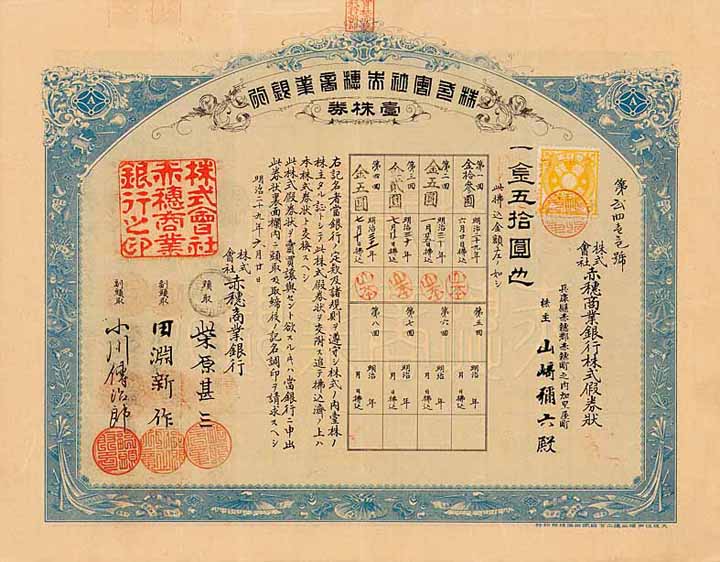 株式會社赤穗商業銀行
壹株券
第弐四壱壱號
株式會社赤穗商業銀行株式假券狀
兵庫縣赤穗郡赤穗町之内加里屋町
株主 山﨑彌六殿
一金五拾圓也
此拂込金額左ノ如シ
第一回 金拾参圓 明治二十九年六月廿日拂込
第二回 金五圓 明治三十年一月廿五日拂込
第三回 金弐圓 明治三十年七月廿日拂込
第四回 金五圓 明治三十一年七月十日拂込
第五回 明治 年 月 日拂込
第六回 明治 年 月 日拂込
第七回 明治 年 月 日拂込
第八回 明治 年 月 日拂込
右記名者當銀行ノ定款及諸規則ヲ遵守シ株式ノ内壹株ノ
株主タル証トシテ此株式假券狀ヲ交附ス追テ拂込濟ノ上ハ
本株式券狀ト交換スヘシ
此株式假券狀ヲ賣買讓與セント欲スルトキハ當銀行ニ申出
此券狀裏面欄内ニ頭取及取締役ノ記名調印ヲ請求スヘシ
明治二十九年六月廿日
株式會社赤穗商業銀行
頭取 柴原甚三
副頭取 田淵新作
副頭取 小川傳治郎
株式會社赤穗商業銀行之印